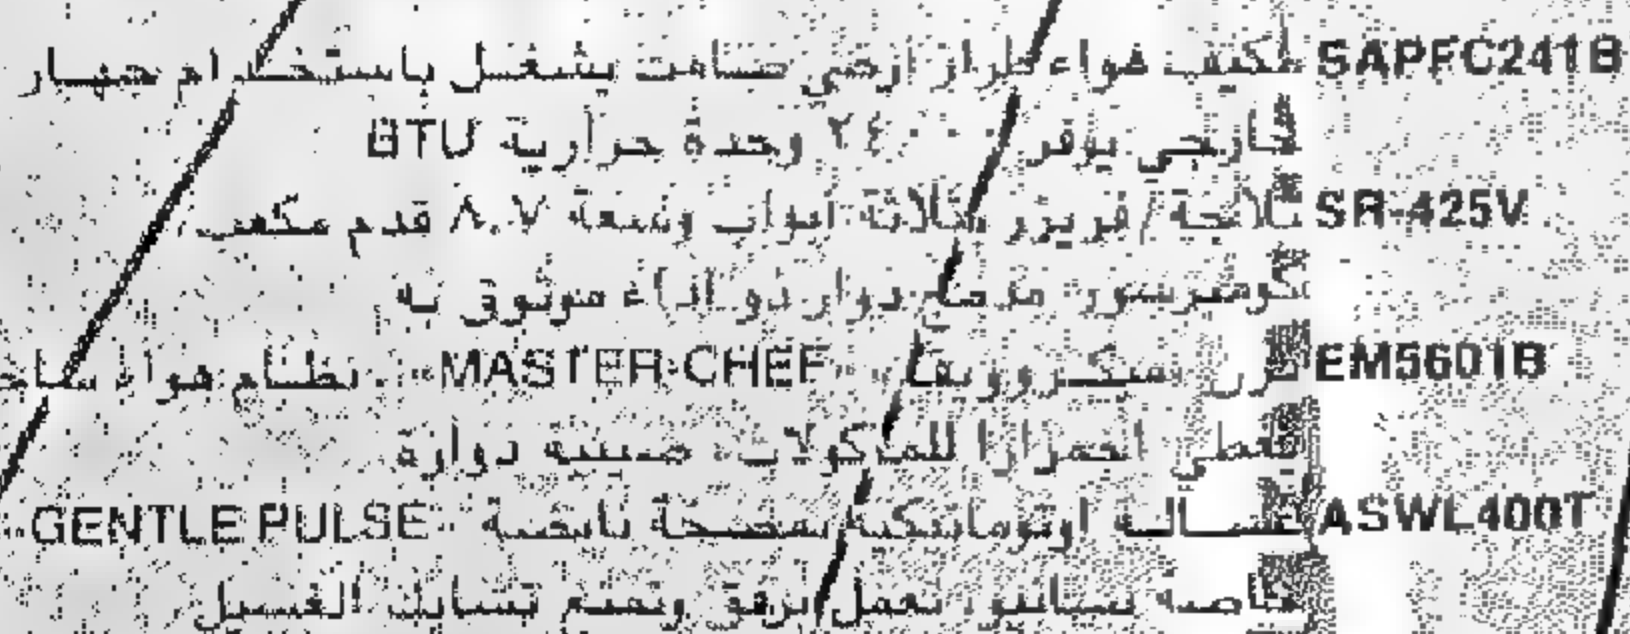 SAPFC241B مكيف هواء طراز ارضي صامت يشغل باستخدام جهاز
خارجي يوفر ٢٤٠٠٠ وحدة حرارية BTU
SR-425V ثلاجة / فريزر بثلاثة ابواب وسعة ٨.٧ قدم مكعب
كومبرسور دوار ذو اداء موثوق به
EM5601B فرن ميكروويف MASTER CHEF نظام هواء ساخن
يعطي احمرارا للماكولات صينية دوارة
ASWL400T غسالة اوتوماتيكية بمضخة نابضة GENTLE PULSE
خاصة تعمل برفق وتمنع تشابك الغسيل